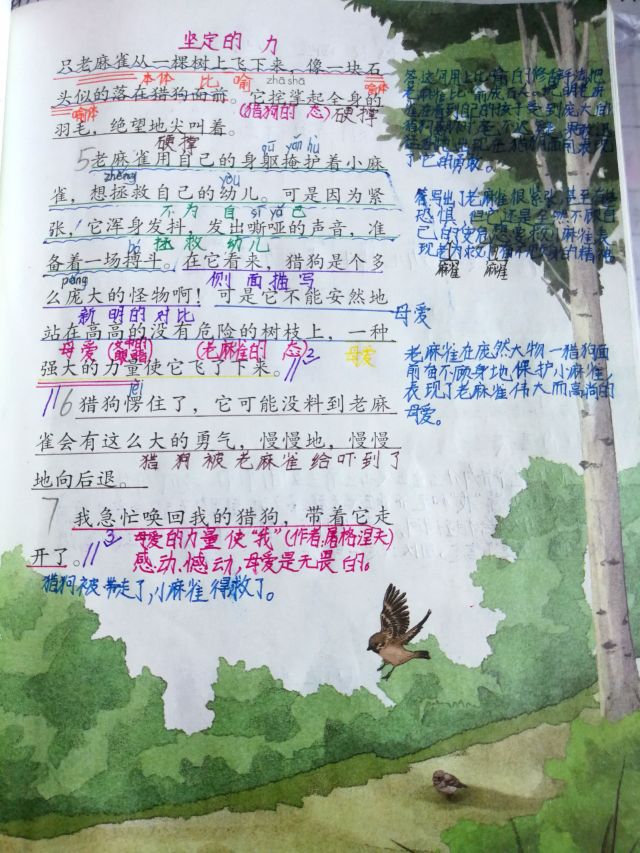 坚定的 力
只老麻雀从一棵树上飞下来，像一块石
本体 比 喻 zhā shā 喻体
头似的落在猎狗面前。它挓挲起全身的
喻体 (猎狗的 态) 硬撑
羽毛，绝望地尖叫着。
硬撑 qū yǎn hù
5 老麻雀用自己的身躯掩护着小麻
zhěng yòu
雀，想拯救自己的幼儿。可是因为紧
不 为 自 sī yǎ 己
张，它浑身发抖，发出嘶哑的声音，准
bó 拯 救 幼儿
备着一场搏斗。在它看来，猎狗是个多
páng 侧 面 描 写
么庞大的怪物啊！可是它不能安然地
新 明的 对比
站在高高的没有危险的树枝上，一种
母爱 (老麻雀的 态) 母爱
强大的力量使它飞了下来。
2
lèi
6 猎狗愣住了，它可能没料到老麻
雀会有这么大的勇气，慢慢地，慢慢
猎 狗 被 老麻雀 给 吓 到 了
地向后退。
7 我急忙唤回我的猎狗，带着它走
3 母爱的力量 使“我”(作者,屠格涅夫)
开了。
感动、憾动，母爱是无畏 的。
猎狗被 带走了,小麻雀 得救了。
答 这句用上比喻的修辞手法,把
老麻雀比喻成石头。
了它的勇敢。
答写出了老麻雀很紧张甚至有些
恐惧，但它还是全然不顾自
己的安危想要救小麻雀,表
麻雀 麻雀
母爱
老麻雀在庞然大物一猎狗面
前奋不顾身地保护小麻雀,
表现了老麻雀伟大而高尚的
母爱。